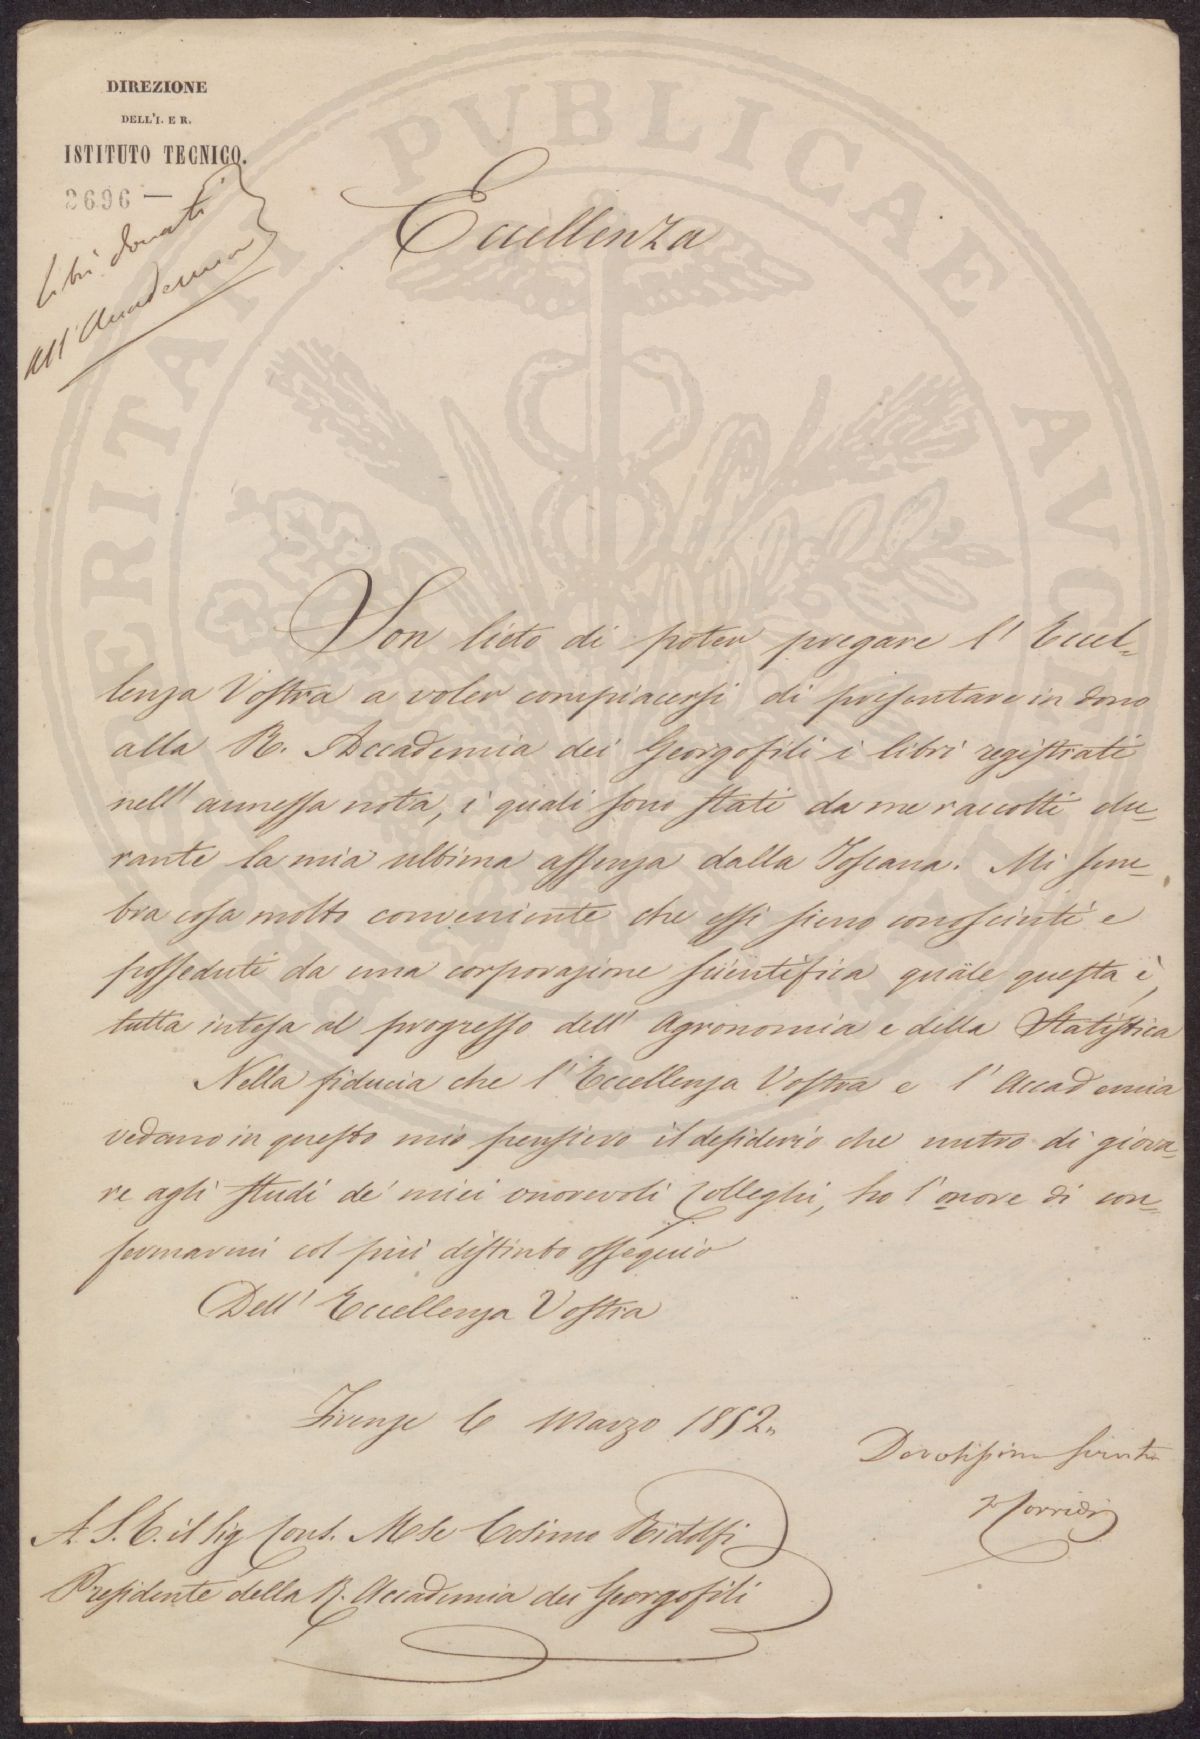 DIREZIONE
DELL'I. E R.
ISTITUTO TECNICO.
2696 —
Libri donati
all'Accademia
Eccellenza
Son lieto di poter pregare l'Eccel-
lenza Vostra a voler compiacersi di presentare in dono
alla R. Accademia dei Georgofili i libri registrati
nell'annessa nota, i quali sono stati da me raccolti du-
rante la mia ultima assenza dalla Toscana. Mi sem-
bra cosa molto conveniente che essi sieno conosciuti e
posseduti da una corporazione scientifica quale questa è,
tutta intesa al progresso dell'Agronomia e della Statistica
Nella fiducia che l'Eccellenza Vostra e l'Accademia
vedano in questo mio pensiero il desiderio che nutro di giova-
re agli studi de' miei onorevoli Colleghi, ho l'onore di con-
fermarmi col più distinto ossequio
Dell'Eccellenza Vostra
Firenze 6 Marzo 1852.
Devotissimo Servitore
F Corridi
A. S. E. il Sig Cons. Mse Cosimo Ridolfi
Presidente della R. Accademia dei Georgofili
PROSPERITATI PUBLICAE AUGENDAE